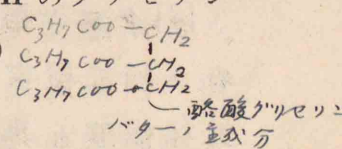 C3H7COO-CH2
C3H7COO-CH2
C3H7COO-CH2
酪酸グリセリン
バター、主成分